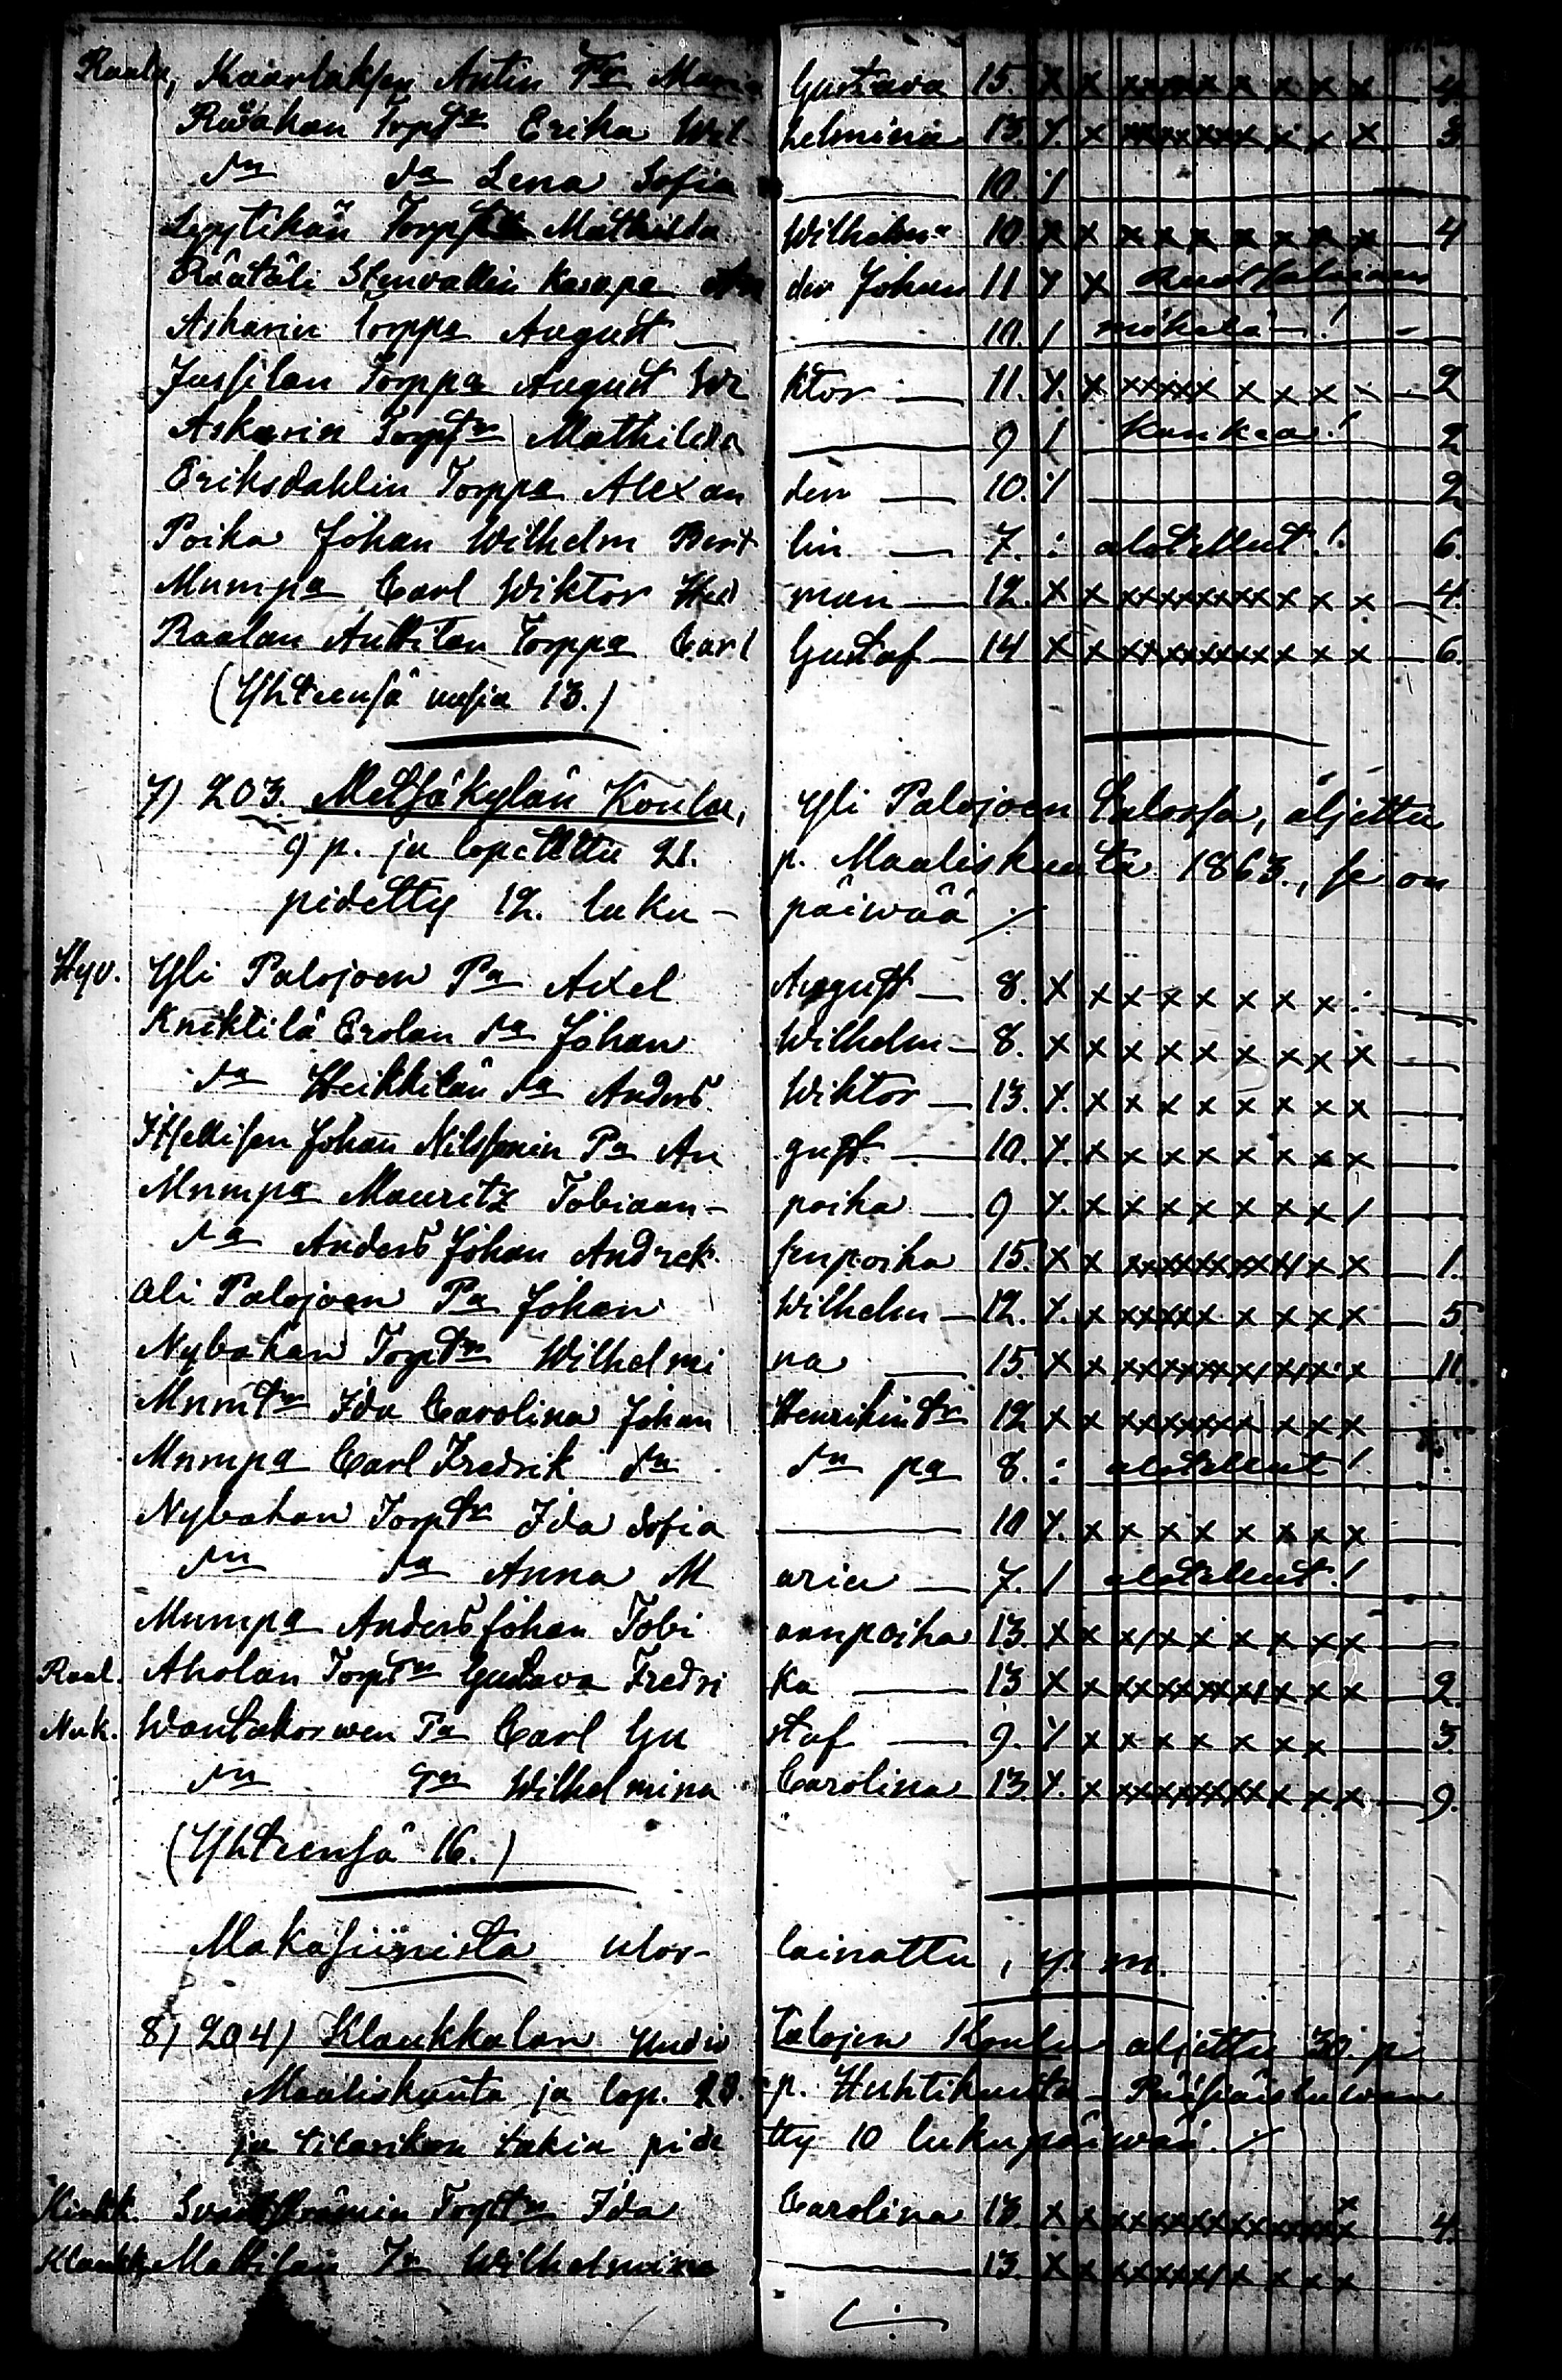 Raala, Kaarlaksen Antin Tr Maria Gustava 15. x x xxxxx x x x x x 4.
Rivahan Torptr Erika Wilhelmina 13. x. x xxxxxxx x x x x 3
dn da Lena Sofia 10. /
Lyytikän Torptr Mathilda Wilhelma 10 x x x x x x x x x x 4
Räätäli Stenvallin Karpa Ander Johan 11 x x
Askarin Torppa August 10. /
Jussilan Torppa August Wiktor 11. x. x xxxxx x x x x 2
Askarin Torptr Mathilda 9 / 2
Eriksdahlin Torppa Alexander 10. / 2
Poika Johan Wilhelm Bertlin 7. : alotellut! 6.
Mnmpa Carl Wiktor Hedman 12. x x xxxxxxxx x x x 4.
Raalan Anttilan Torppa Carl Gustaf 14 x x xxxxxxxx x x x 6.
(Yhteensä uusia 13.)
7) 203. Metsäkylän Koulu, Yli Palojoen Talossa, aljettu
9 p. ja lopetettu 21. p. Maaliskuuta 1863., se on
pidetty 12. luku-päiwää ⁒
Hyv. Yli Palojoen Pa Axel August 8. x x x x x x x x
Knektilä Erolan da Johan Wilhelm 8. x x x x x x x x x
da Heikkilän da Anders Wiktor 13. x. x x x x x x x x
Itsellisen Johan Nilssonin Pa August 10. x. x x x x x x x x
Mnmpa Mauritz Tobiaanpoika 9 x. x x x x x x x /
da Anders Johan Andreksenpoika 15. x x xxxxxxxxx x x 1.
Ali Palojoen Pa Johan Wilhelm 12. x. x xxxxx x x x x x 5
Nybakan Torptr Wilhelmina 15. x x xxxxxxxxxxx x 11.
Mnmtr Ida Carolina Johan Henrikin tr 12 x x xxxxxxx x x x
Mnmpa Carl Fredrik dn dn pa 8. : alotellut!
Nybakan Torptr Ida Sofia 10 x. x x x x x x x x
dn da Anna Maria 7. / alotellut!
Mnmpa Anders Johan Tobiaanpoika 13. x x x x x x x x x
Raal. Aholan Torptr Gustava Fredrika 13 x x xxxxxxxx x x x 2.
Nuk. Wantakorwen Pa Carl Gustaf 9. x x x x x x x x 3.
dn Tr Wilhelmina Carolina 13 x. x xxxxxxxx x x x x 9.
(Yhteensä 16.)
Makasiinista uloslainattu, y. m.
8) 204) Klaukkalan Talojen Koulu aljettu 30 p
Maaliskuuta ja lop. p. Huhtikuuta
ja tilaisikon takia pidetty 10 lukupäiwää. ⁒
Kirkk. Torptr Ida Carolina 13. x x xxxxxxxxxxxx 4.
Klaukk. Mattilan Tr Wilhelmina 13 x x xxxxxx x x x x